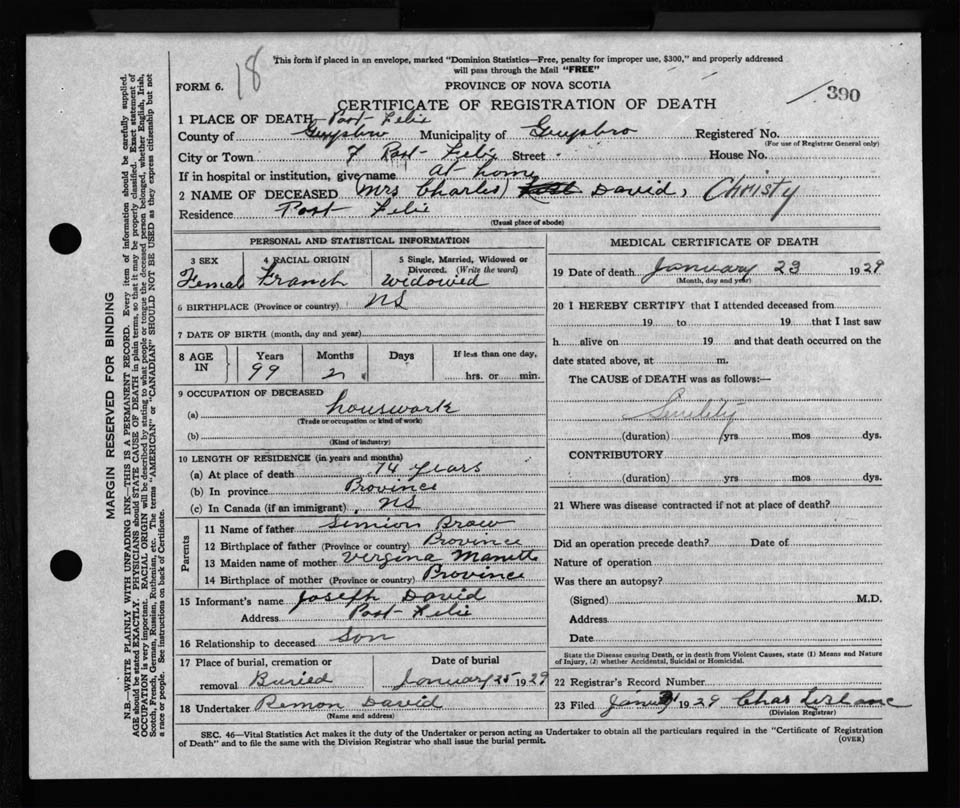 This form if placed in an envelope, marked "Dominion Statistics—Free, penalty for improper use, $300," and properly addressed
will pass through the Mail "FREE"
18
FORM 6.
PROVINCE OF NOVA SCOTIA
CERTIFICATE OF REGISTRATION OF DEATH
390
1 PLACE OF DEATH Port Felix
County of Guysbro Municipality of Guysbro Registered No.
(For use of Registrar General only)
City or Town 7 Port Felix Street House No.
If in hospital or institution, give name at home
2 NAME OF DECEASED (Mrs Charles) David, Christy
Residence Port Felix
(Usual place of abode)
PERSONAL AND STATISTICAL INFORMATION
3 SEX 4 RACIAL ORIGIN 5 Single, Married, Widowed or Divorced. (Write the word)
Female Franch Widowed
6 BIRTHPLACE (Province or country) NS
7 DATE OF BIRTH (month, day and year)
8 AGE IN Years Months Days If less than one day,
99 2 hrs. or min.
9 OCCUPATION OF DECEASED
(a) houswork
(Trade or occupation or kind of work)
(b)
(Kind of industry)
10 LENGTH OF RESIDENCE (in years and months)
(a) At place of death 74 years
(b) In province Province
(c) In Canada (if an immigrant) NS
Parents
11 Name of father Simion
12 Birthplace of father (Province or country) Province
13 Maiden name of mother Vergina
14 Birthplace of mother (Province or country) Province
15 Informant's name Joseph David
Address Port Felix
16 Relationship to deceased Son
17 Place of burial, cremation or removal Buried
Date of burial January 25 1929
18 Undertaker Remon David
(Name and address)
MEDICAL CERTIFICATE OF DEATH
19 Date of death January 23 1929
(Month, day and year)
20 I HEREBY CERTIFY that I attended deceased from
19 to 19 that I last saw
h alive on 19 and that death occurred on the
date stated above, at m.
The CAUSE of DEATH was as follows:—
Senility
(duration) yrs mos dys.
CONTRIBUTORY
(duration) yrs mos dys.
21 Where was disease contracted if not at place of death?
Did an operation precede death? Date of
Nature of operation
Was there an autopsy?
(Signed) M.D.
Address
Date
State the Disease causing Death, or in death from Violent Causes, state (1) Means and Nature
of Injury, (2) whether Accidental, Suicidal or Homicidal.
22 Registrar's Record Number
23 Filed 1929 Chas
(Division Registrar)
SEC. 46—Vital Statistics Act makes it the duty of the Undertaker or person acting as Undertaker to obtain all the particulars required in the "Certificate of Registration
of Death" and to file the same with the Division Registrar who shall issue the burial permit.
(OVER)
MARGIN RESERVED FOR BINDING
N.B.—WRITE PLAINLY WITH UNFADING INK—THIS IS A PERMANENT RECORD. Every item of information should be carefully supplied.
AGE should be stated EXACTLY. PHYSICIANS should STATE CAUSE OF DEATH in plain terms, so that it may be properly classified. Exact statement of
OCCUPATION is very important. RACIAL ORIGIN will be described by stating to what people or tongue the deceased person belonged, whether English, Irish,
Scotch, French, German, Russian, Ruthenian, etc. The terms "AMERICAN" or "CANADIAN" SHOULD NOT BE USED as they express citizenship but not
a race or people. See instructions on back of Certificate.